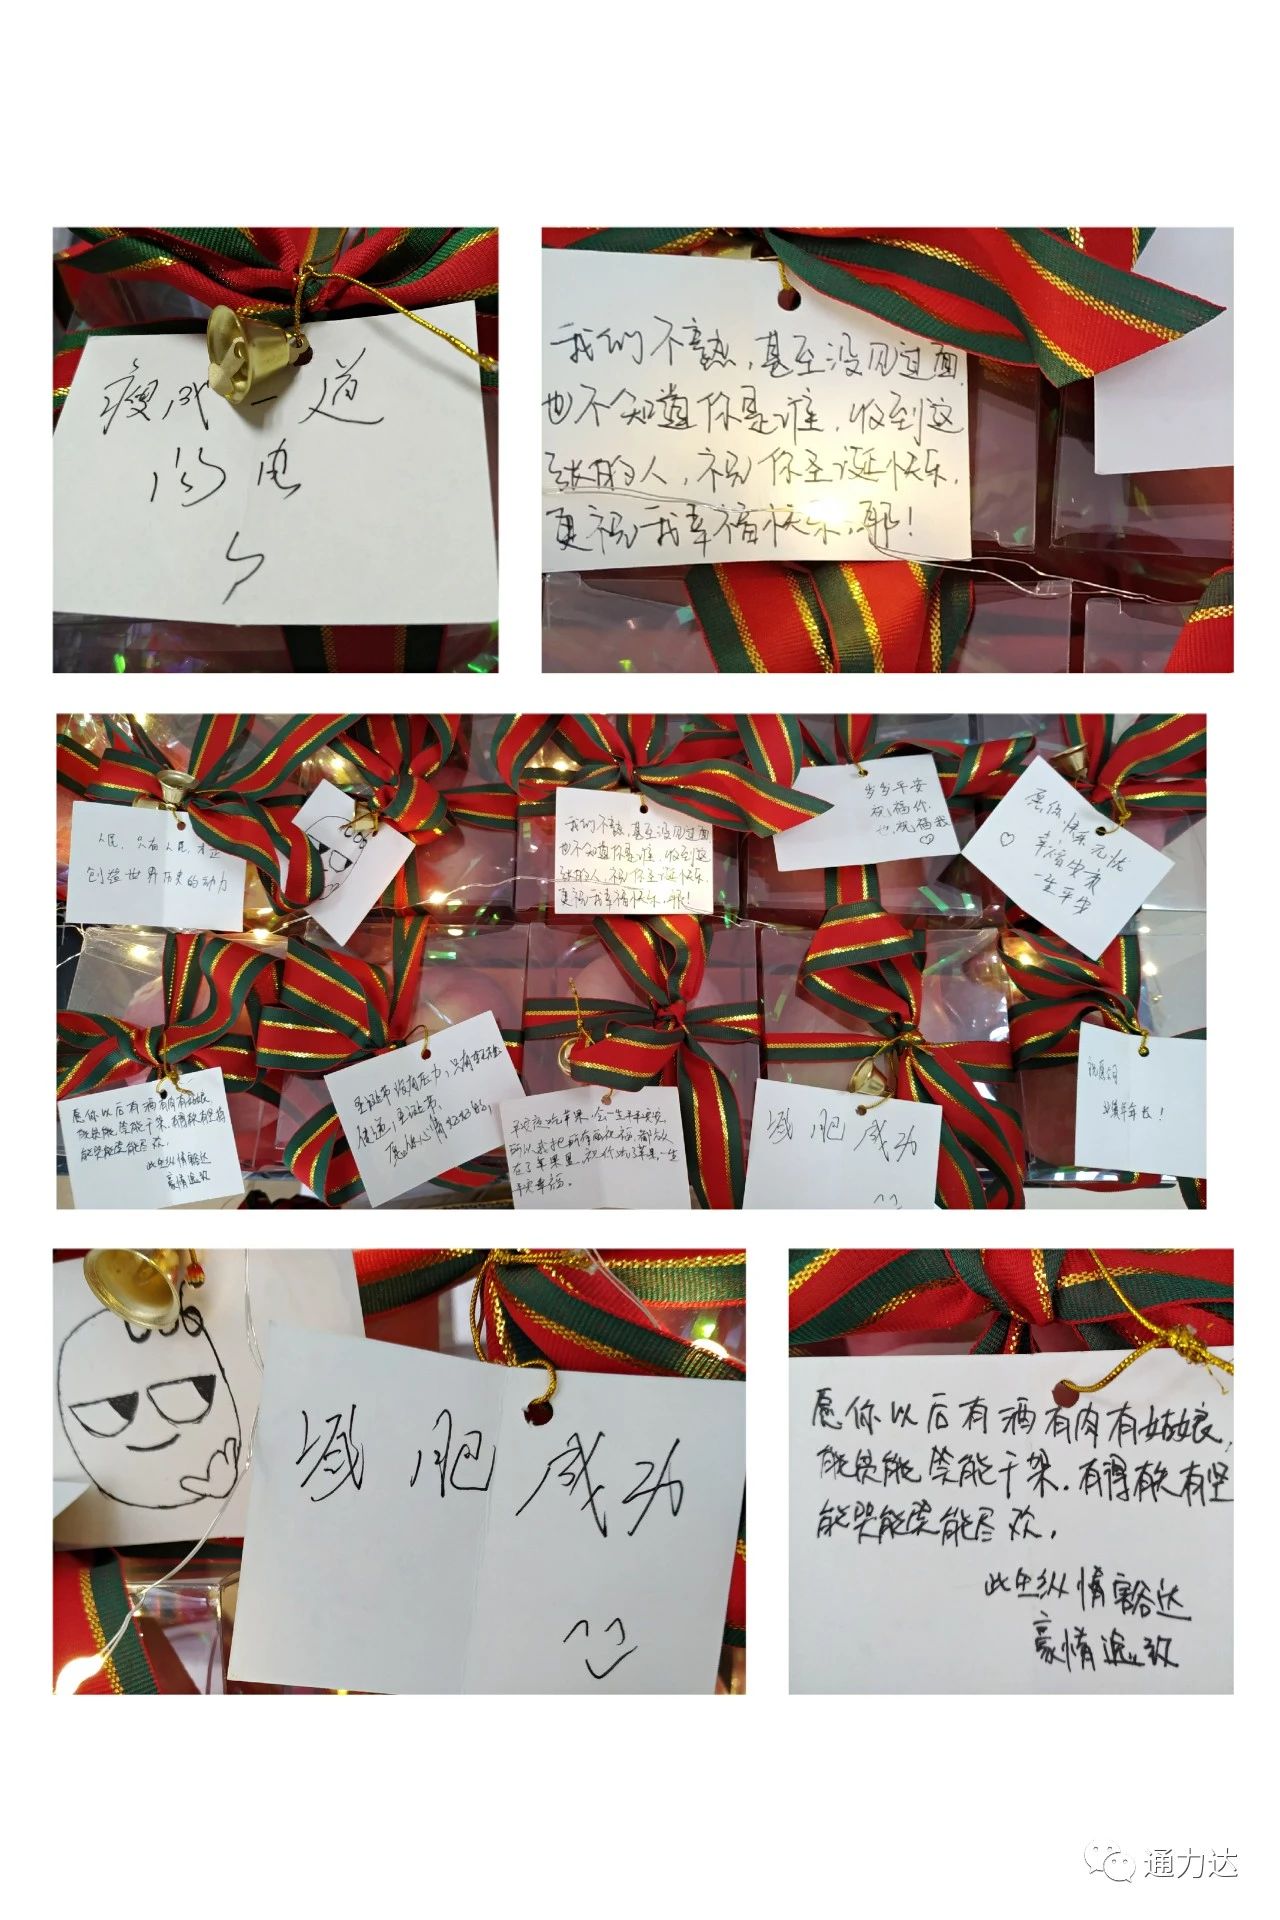 瘦成一道
闪电
我们不熟，甚至没见过面
也不知道你是谁，收到这
张的人，祝你圣诞快乐，
更祝我幸福快乐，耶！
人民，只有人民，才是
创造世界历史的动力
我们不熟，甚至没见过面
也不知道你是谁，收到这
张的人，祝你圣诞快乐，
更祝我幸福快乐，耶！
岁岁平安
祝福你
也祝福我
愿你快乐无忧
幸福安康
一生平安
愿你以后有酒有肉有姑娘，
能哭能笑能尽欢，
此生纵情豁达
豪情逸致
圣诞节没有压力，只有
愿你心情好好的，
平安夜吃苹果，会一生平平安安，
所以我把所有的祝福都放
在了苹果里，祝你吃了苹果，一生
平安幸福。
减肥成功
祝愿公司
业绩年年长！
减肥成功
愿你以后有酒有肉有姑娘，
能贫能笑能干架，有得有失有坚
能哭能笑能尽欢，
此生纵情豁达
豪情逸致
通力达